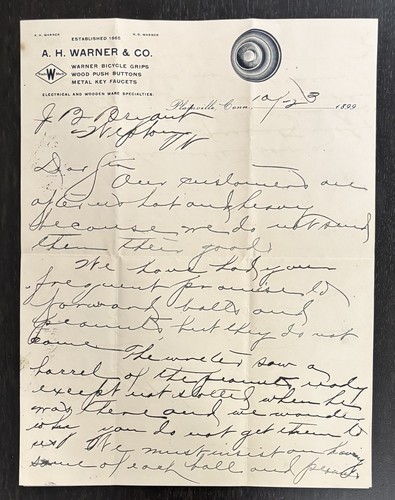 A. H. WARNER
H. D. WARNER
ESTABLISHED 1860
A. H. WARNER & CO.
W
WARNER BICYCLE GRIPS
WOOD PUSH BUTTONS
METAL KEY FAUCETS
ELECTRICAL AND WOODEN WARE SPECIALTIES.
Plainville, Conn. 10/23 1899
J B Bryant
Dear Sir
Our customers are
after us hot and heavy
because we do not send
them their goods
We have had your
frequent promises to
forward balls and
but they do not
come. The writer saw a
barrel of the ready
except not slotted when he
was there and we wonder
why you do not get them to
us? We must insist on having
some of each ball and